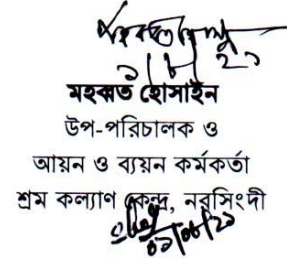 মহব্বত হোসাইন
উপ-পরিচালক ও
আয়ন ও ব্যয়ন কর্মকর্তা
শ্রম কল্যাণ কেন্দ্র, নরসিংদী